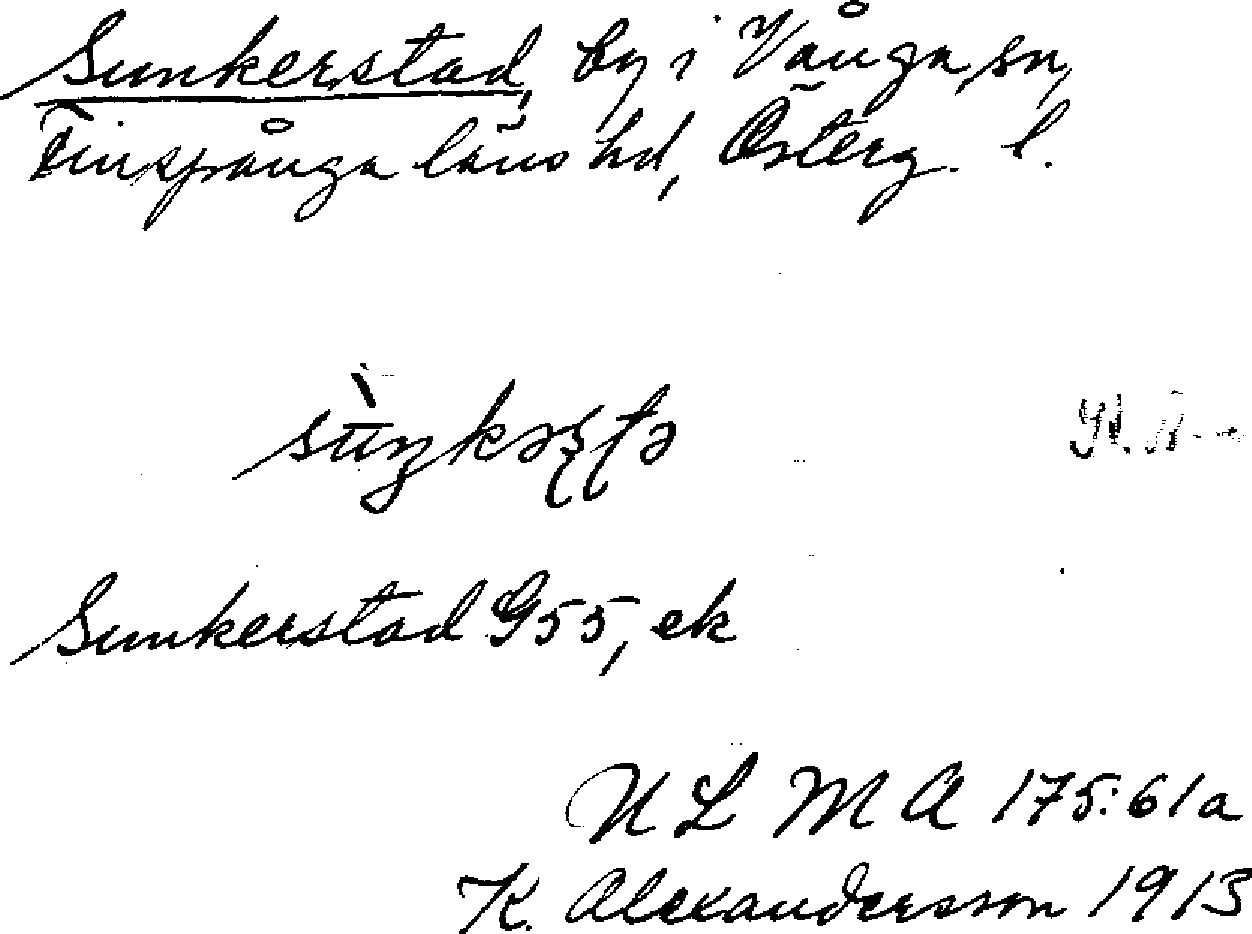 Sunkerstad, by i Vånga sn,
Finspånga läns hd, Österg. l.
sùŋkəʂʈə
Sunkerstad G55, ek
ULMA 175:61a
K. Alexandersson 1913